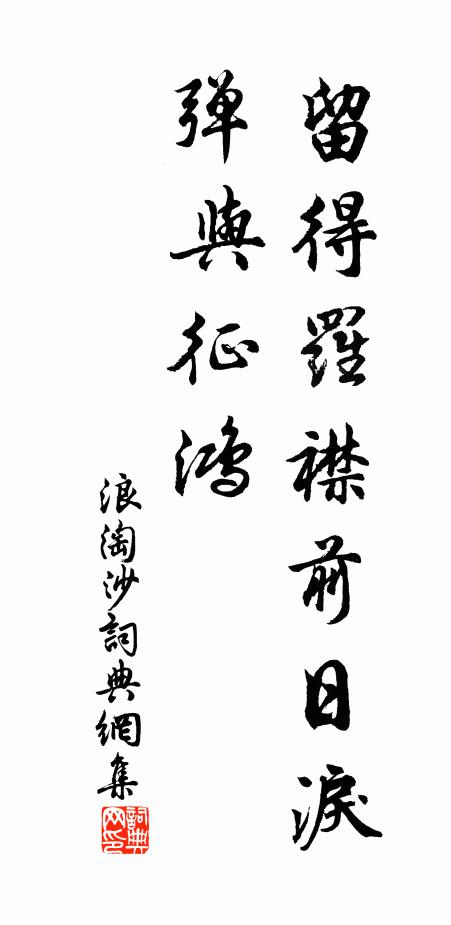 留得羅襟前日淚
弹與征鸿
浪淘沙詞典網集
詞典
网印